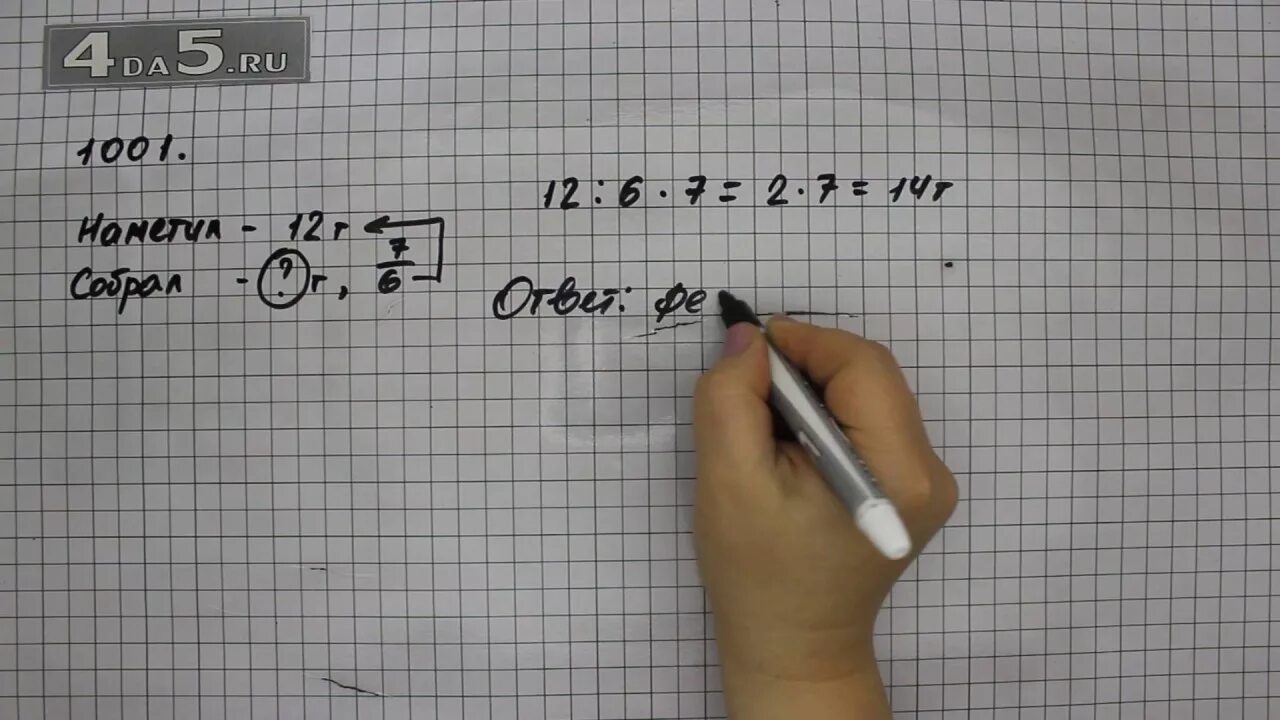 4DA5.RU
1001.
Наметил - 12т
Собрал - ?т, 7/6
12 : 6 · 7 = 2 · 7 = 14т
Ответ: фе